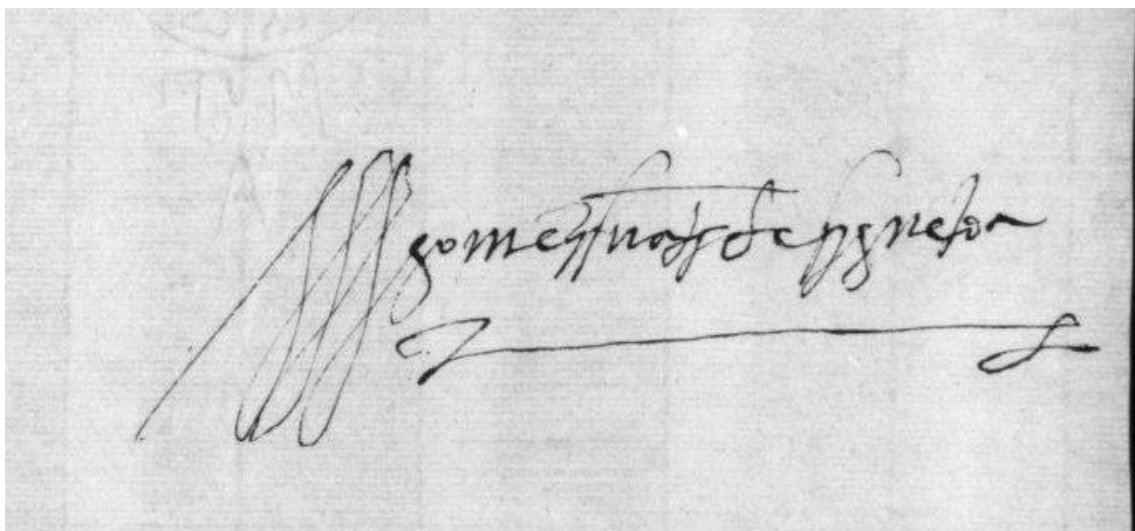 gomez suarez de figueroa